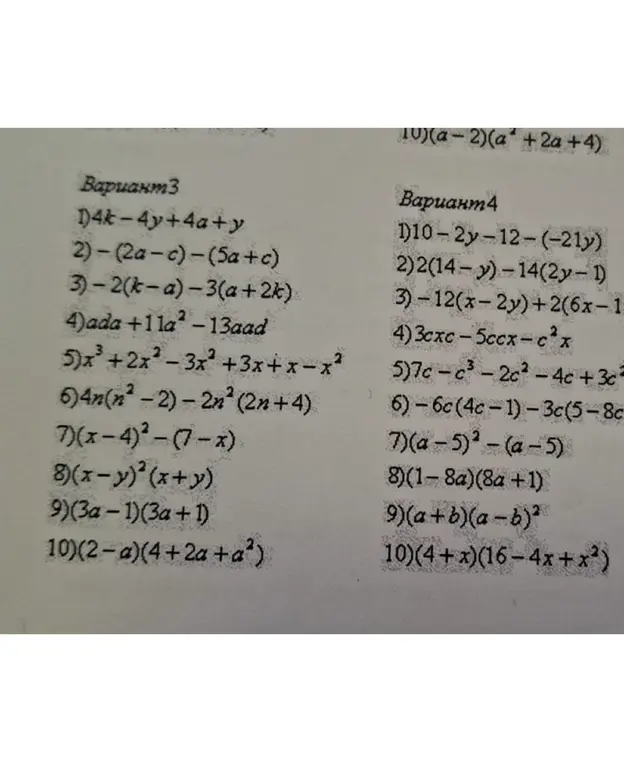 10)(a−2)(a²+2a+4)
Вариант3
1)4k−4y+4a+y
2)−(2a−c)−(5a+c)
3)−2(k−a)−3(a+2k)
4)ada+11a²−13aad
5)x³+2x²−3x²+3x+x−x²
6)4n(n²−2)−2n²(2n+4)
7)(x−4)²−(7−x)
8)(x−y)²(x+y)
9)(3a−1)(3a+1)
10)(2−a)(4+2a+a²)
Вариант4
1)10−2y−12−(−21y)
2)2(14−y)−14(2y−1)
3)−12(x−2y)+2(6x−1
4)3cxc−5ccx−c²x
5)7c−c³−2c²−4c+3c²
6)−6c(4c−1)−3c(5−8c
7)(a−5)²−(a−5)
8)(1−8a)(8a+1)
9)(a+b)(a−b)²
10)(4+x)(16−4x+x²)